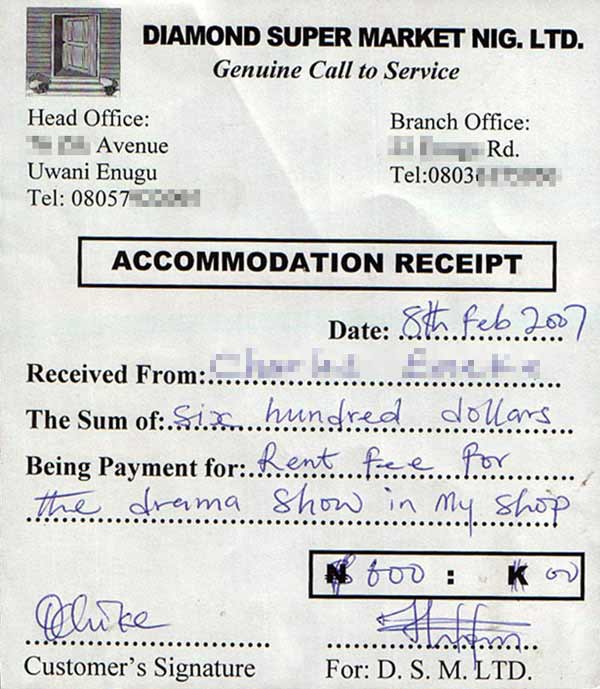 DIAMOND SUPER MARKET NIG. LTD.
Genuine Call to Service
Head Office:
Avenue
Uwani Enugu
Tel: 08057
Branch Office:
Rd.
Tel:0803
ACCOMMODATION RECEIPT
Date: 8th Feb 2007
Received From:
The Sum of: Six hundred dollars
Being Payment for: Rent fee for
the drama Show in my shop
$ 600 : K 00
Customer's Signature
For: D. S. M. LTD.